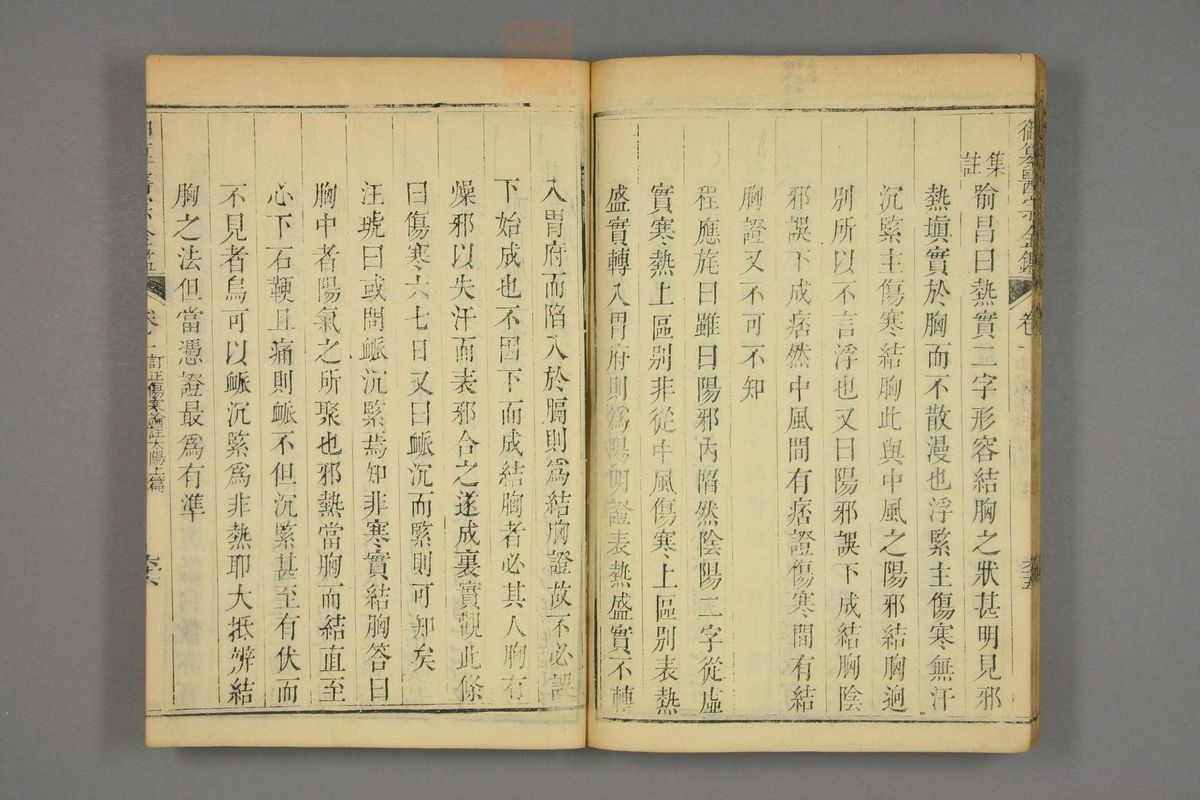 御纂醫宗金鑑 卷一
集註
喻昌曰熱實二字形容結胸之狀甚明見邪
熱塡實於胸而不散漫也浮緊主傷寒無汗
沉緊主傷寒結胸此與中風之陽邪結胸逈
別所以不言浮也又曰陽邪誤下成結胸陰
邪誤下成痞然中風間有痞證傷寒間有結
胸證又不可不知
程應旄曰雖曰陽邪內陷然陰陽二字從虛
實寒熱上區別非從中風傷寒上區別表熱
盛實轉入胃府則爲陽明證表熱盛實不轉
入胃府而陷入於膈則爲結胸證故不必誤
下始成也不因下而成結胸者必其人胸有
燥邪以失汗而表邪合之遂成裏實觀此條
曰傷寒六七日又曰䘑沉而緊則可知矣
汪琥曰或問䘑沉緊焉知非寒實結胸答曰
胸中者陽氣之所聚也邪熱當胸而結直至
心下石鞕且痛則䘑不但沉緊甚至有伏而
不見者烏可以䘑沉緊爲非熱耶大抵辨結
胸之法但當憑證最爲有準
卷一 訂正傷寒論註太陽上篇